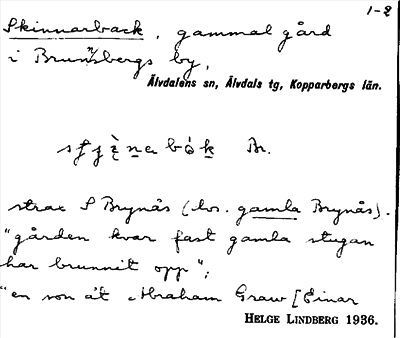 1-2
Skinnarback, gammal gård
i Brunnsbergs by,
Älvdalens sn, Älvdals tg, Kopparbergs län.
Br.
strax S Brynås (bv. gamla Brynås).
"gården kvar fast gamla stugan
har brunnit opp";
"en son åt Abraham Graw [Einar
HELGE LINDBERG 1936.